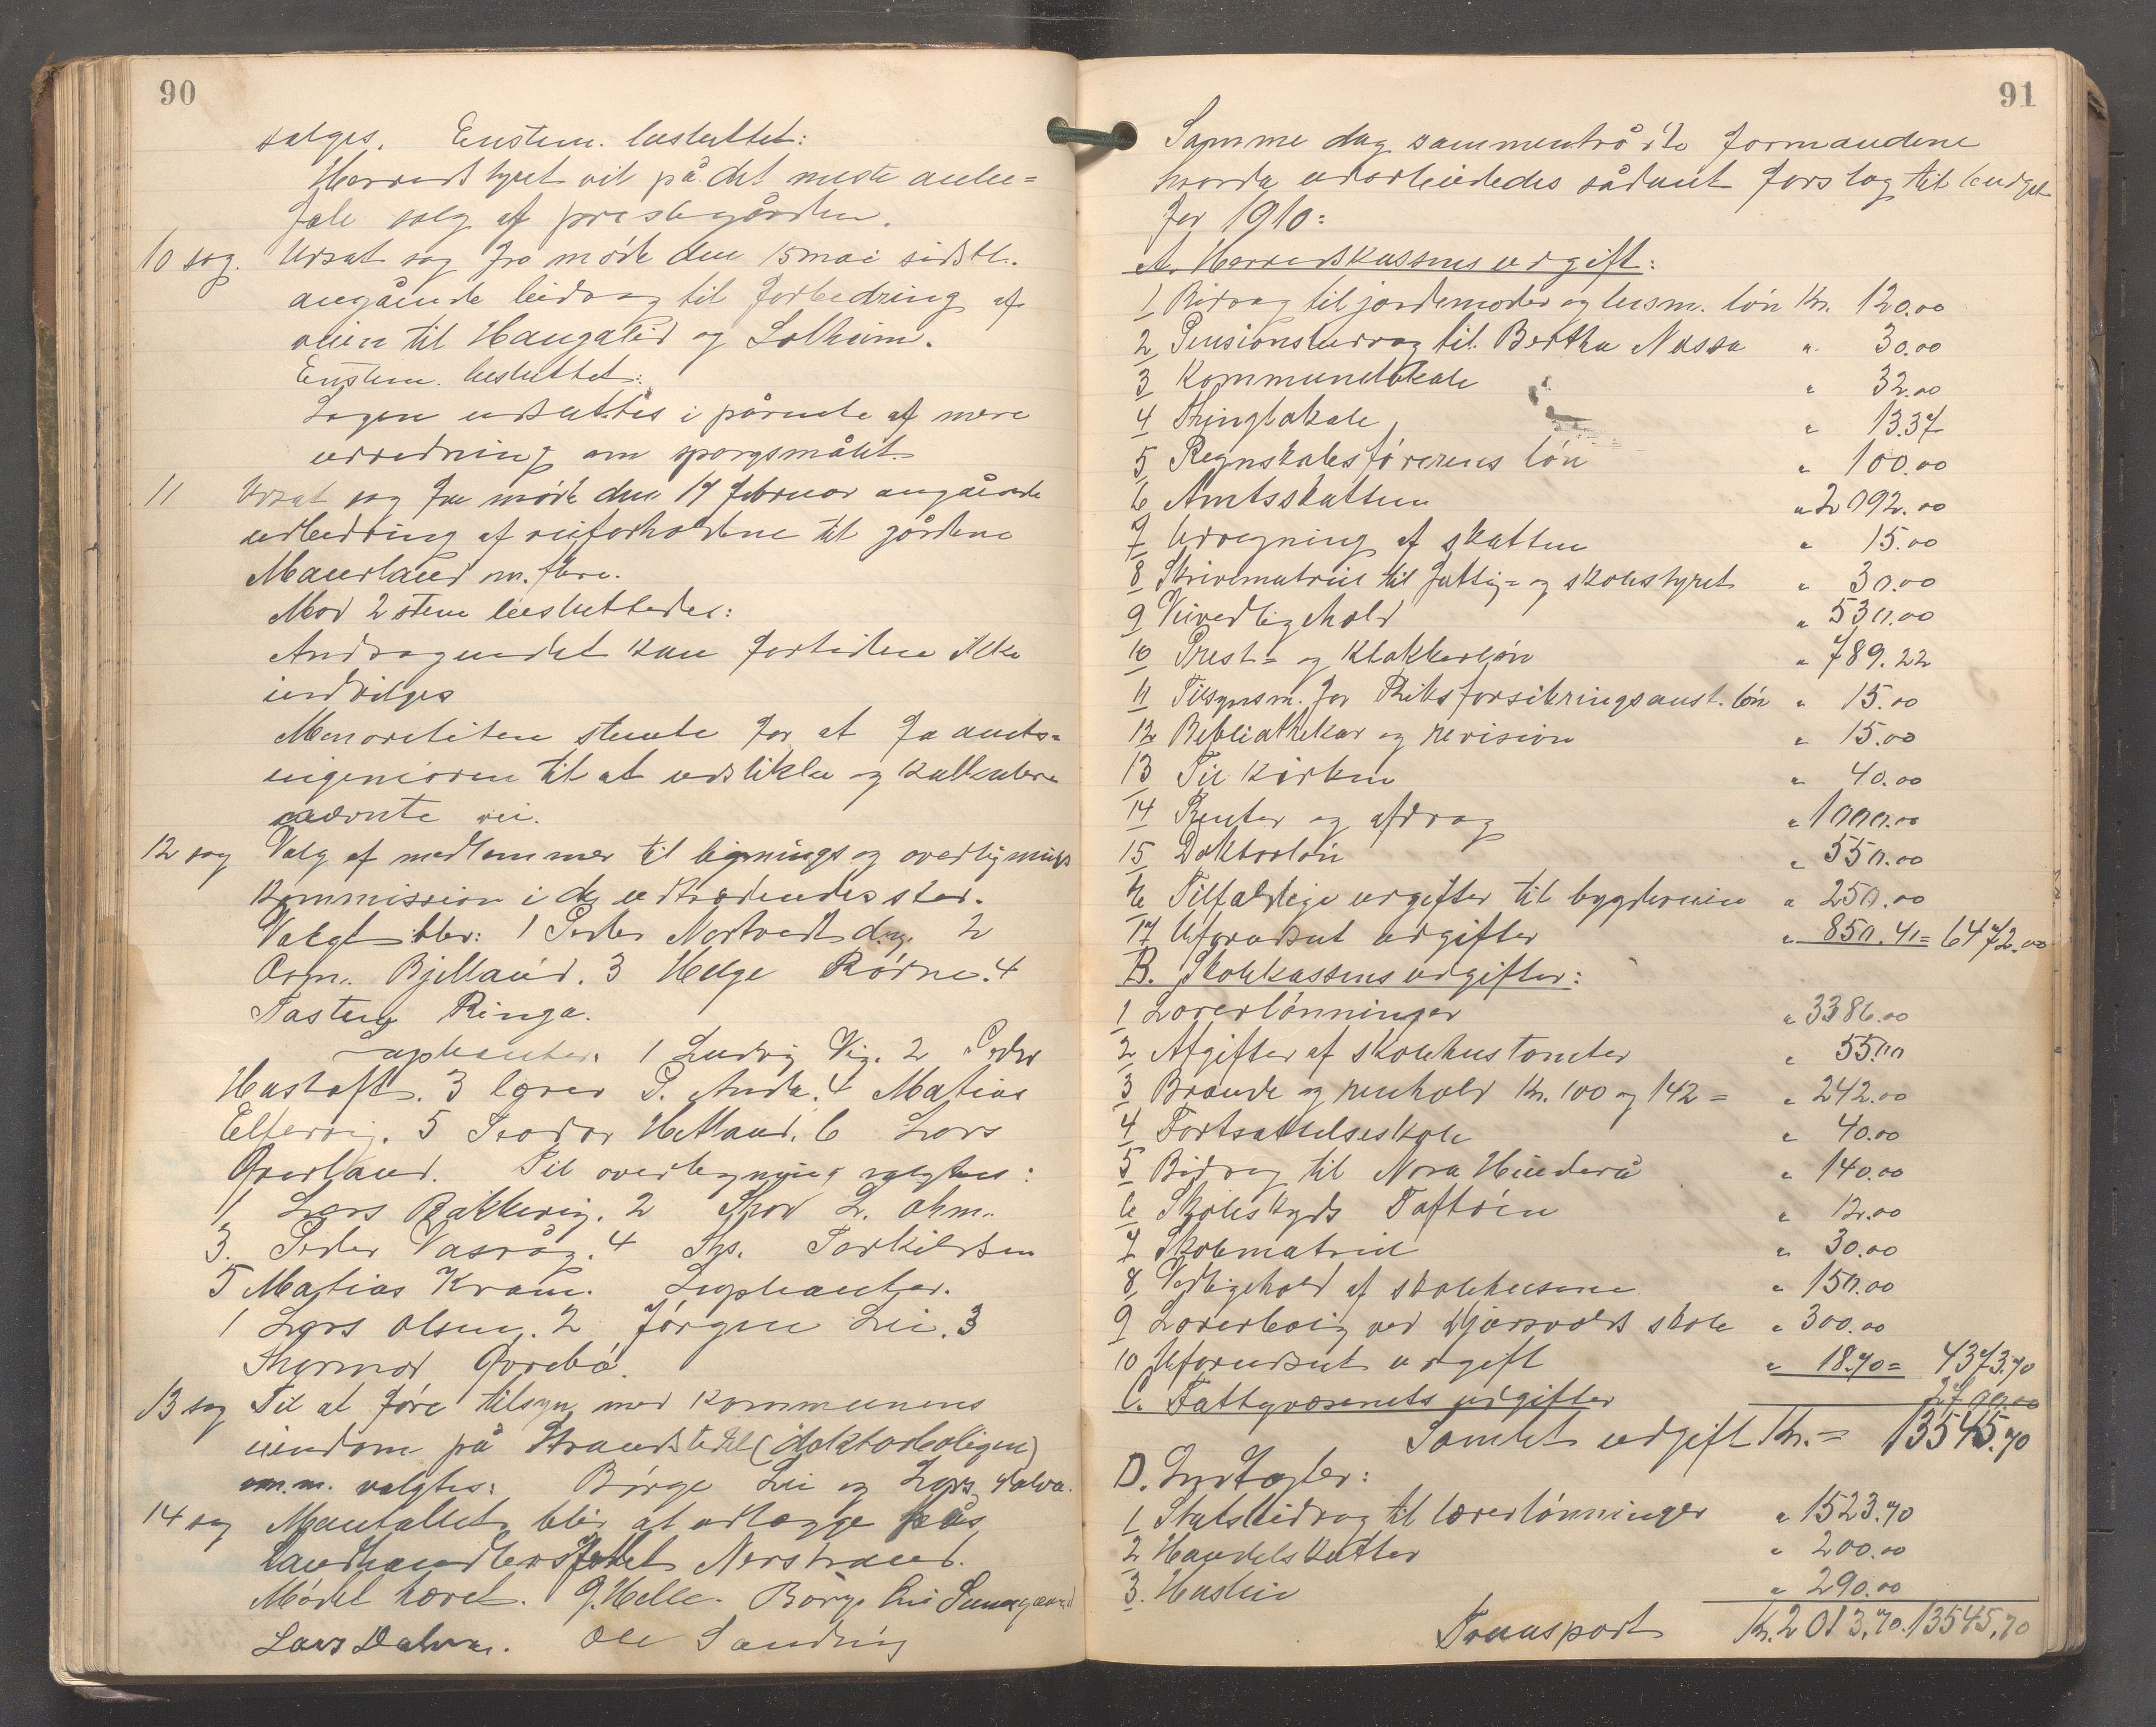 90
salges. Enstem. besluttet:
Herredstyret vil på det meste anbe=
fale salg af prestegården.
10 sag. Udsat sag fra møde den 15 mai sidstl.
angående bidrag til forbedring af
veien til Haugalid og Solheim.
Enstem. besluttet:
Sagen udsættes i påvente af mere
udredning om spørgsmålet.
11 Udsat sag fra møde den 17 februar angående
udbedring af veiforholdene til gårdene
Maurland m. flere.
Mod 2 stem besluttedes:
Andragendet kan fortiden ikke
indvilges
Menoriteten stemte for at få amts=
ingeniøren til at udstikke og kalkulere
nævnte vei.
12 sag Valg af medlemmer til lignings og overlignings
kommission i de udtrædendes sted.
Valgt blev: 1 Peder Nortvedt d.y. 2
Osm. Bjelland. 3 Helge Rødne. 4
Tasten Ringa.
Suplianter. 1 Ludvig Vig. 2 Peder
Hastoft. 3 lærer P. Anda. 4 Matias
Eltervig. 5 Teodor Hetland. 6 Lars
Øverland. Til overligning valgtes:
1 Lars Bakkevig. 2 Thor L. Ohm.
3. Peder Vasvåg. 4 Torkildsen
5 Matias Kram. Suplianter.
1 Lars Olsen. 2 Jørgen Lei. 3
Thormod Øvrebø.
13 sag Til at føre tilsyn med kommunens
eiendom på Strandstedet (doktorboligen)
m.m. valgtes: Børge Lei og Lars Dalva.
14 sag Mantallet blir at udlægge hos
Landhandler Nerstrand.
Mødet hævet. G. Helle. Børge Lei
Lars Dalva. Ole Sandvig
91
Samme dag sammentrådte formændene
hvorda udarbeidedes sådant forslag til budget
for 1910:
A. Herredskassens udgift:
1 Bidrag til jordemoder og lensm. løn Kr. 120.00
2 Pensionsbidrag til Bertha Nessa " 30.00
3 Kommunelokale " 32.00
4 Thinglokale " 13.37
5 Regnskabsførerens løn " 100.00
6 Amtsskatten " 2092.00
7 Udregning af skatten " 15.00
8 Skrivematriel til fattig= og skolestyret " 30.00
9 Veivedligehold " 530.00
10 Prest= og klokkerløn " 789.22
11 Tilsynsm. for Riksforsikringsanst. løn " 15.00
12 Bibliothekar og revision " 15.00
13 Til kirken " 40.00
14 Renter og afdrag " 1000.00
15 Doktorløn " 550.00
16 Tilfældige udgifter til bygdeveie " 250.00
17 Uforudset udgifter " 850.41 = 6472.00
B. Skolekassens udgifter:
1 Lærerlønninger " 3386.00
2 Afgifter af skolehustomter " 55.00
3 Brænde og renhold Kr. 100 og 142 = " 242.00
4 Fortsættelseskole " 40.00
5 Bidrag til Nora Hinderå " 140.00
6 Skoleskyds Toftøen " 12.00
7 Skolematriel " 30.00
8 Vedligehold af skolehusene " 150.00
9 Lærerbolig ved skole " 300.00
10 Uforudset udgift " 18.70 = 4373.70
C. Fattigvæsenets udgifter 2700.00
Samlet udgift Kr. = 13545.70
D. Indtægter:
1 Statsbidrag til lærerlønninger " 1523.70
2 Handelskatter " 200.00
3. Husleie " 290.00
Transport Kr. 2013.70. 13545.70